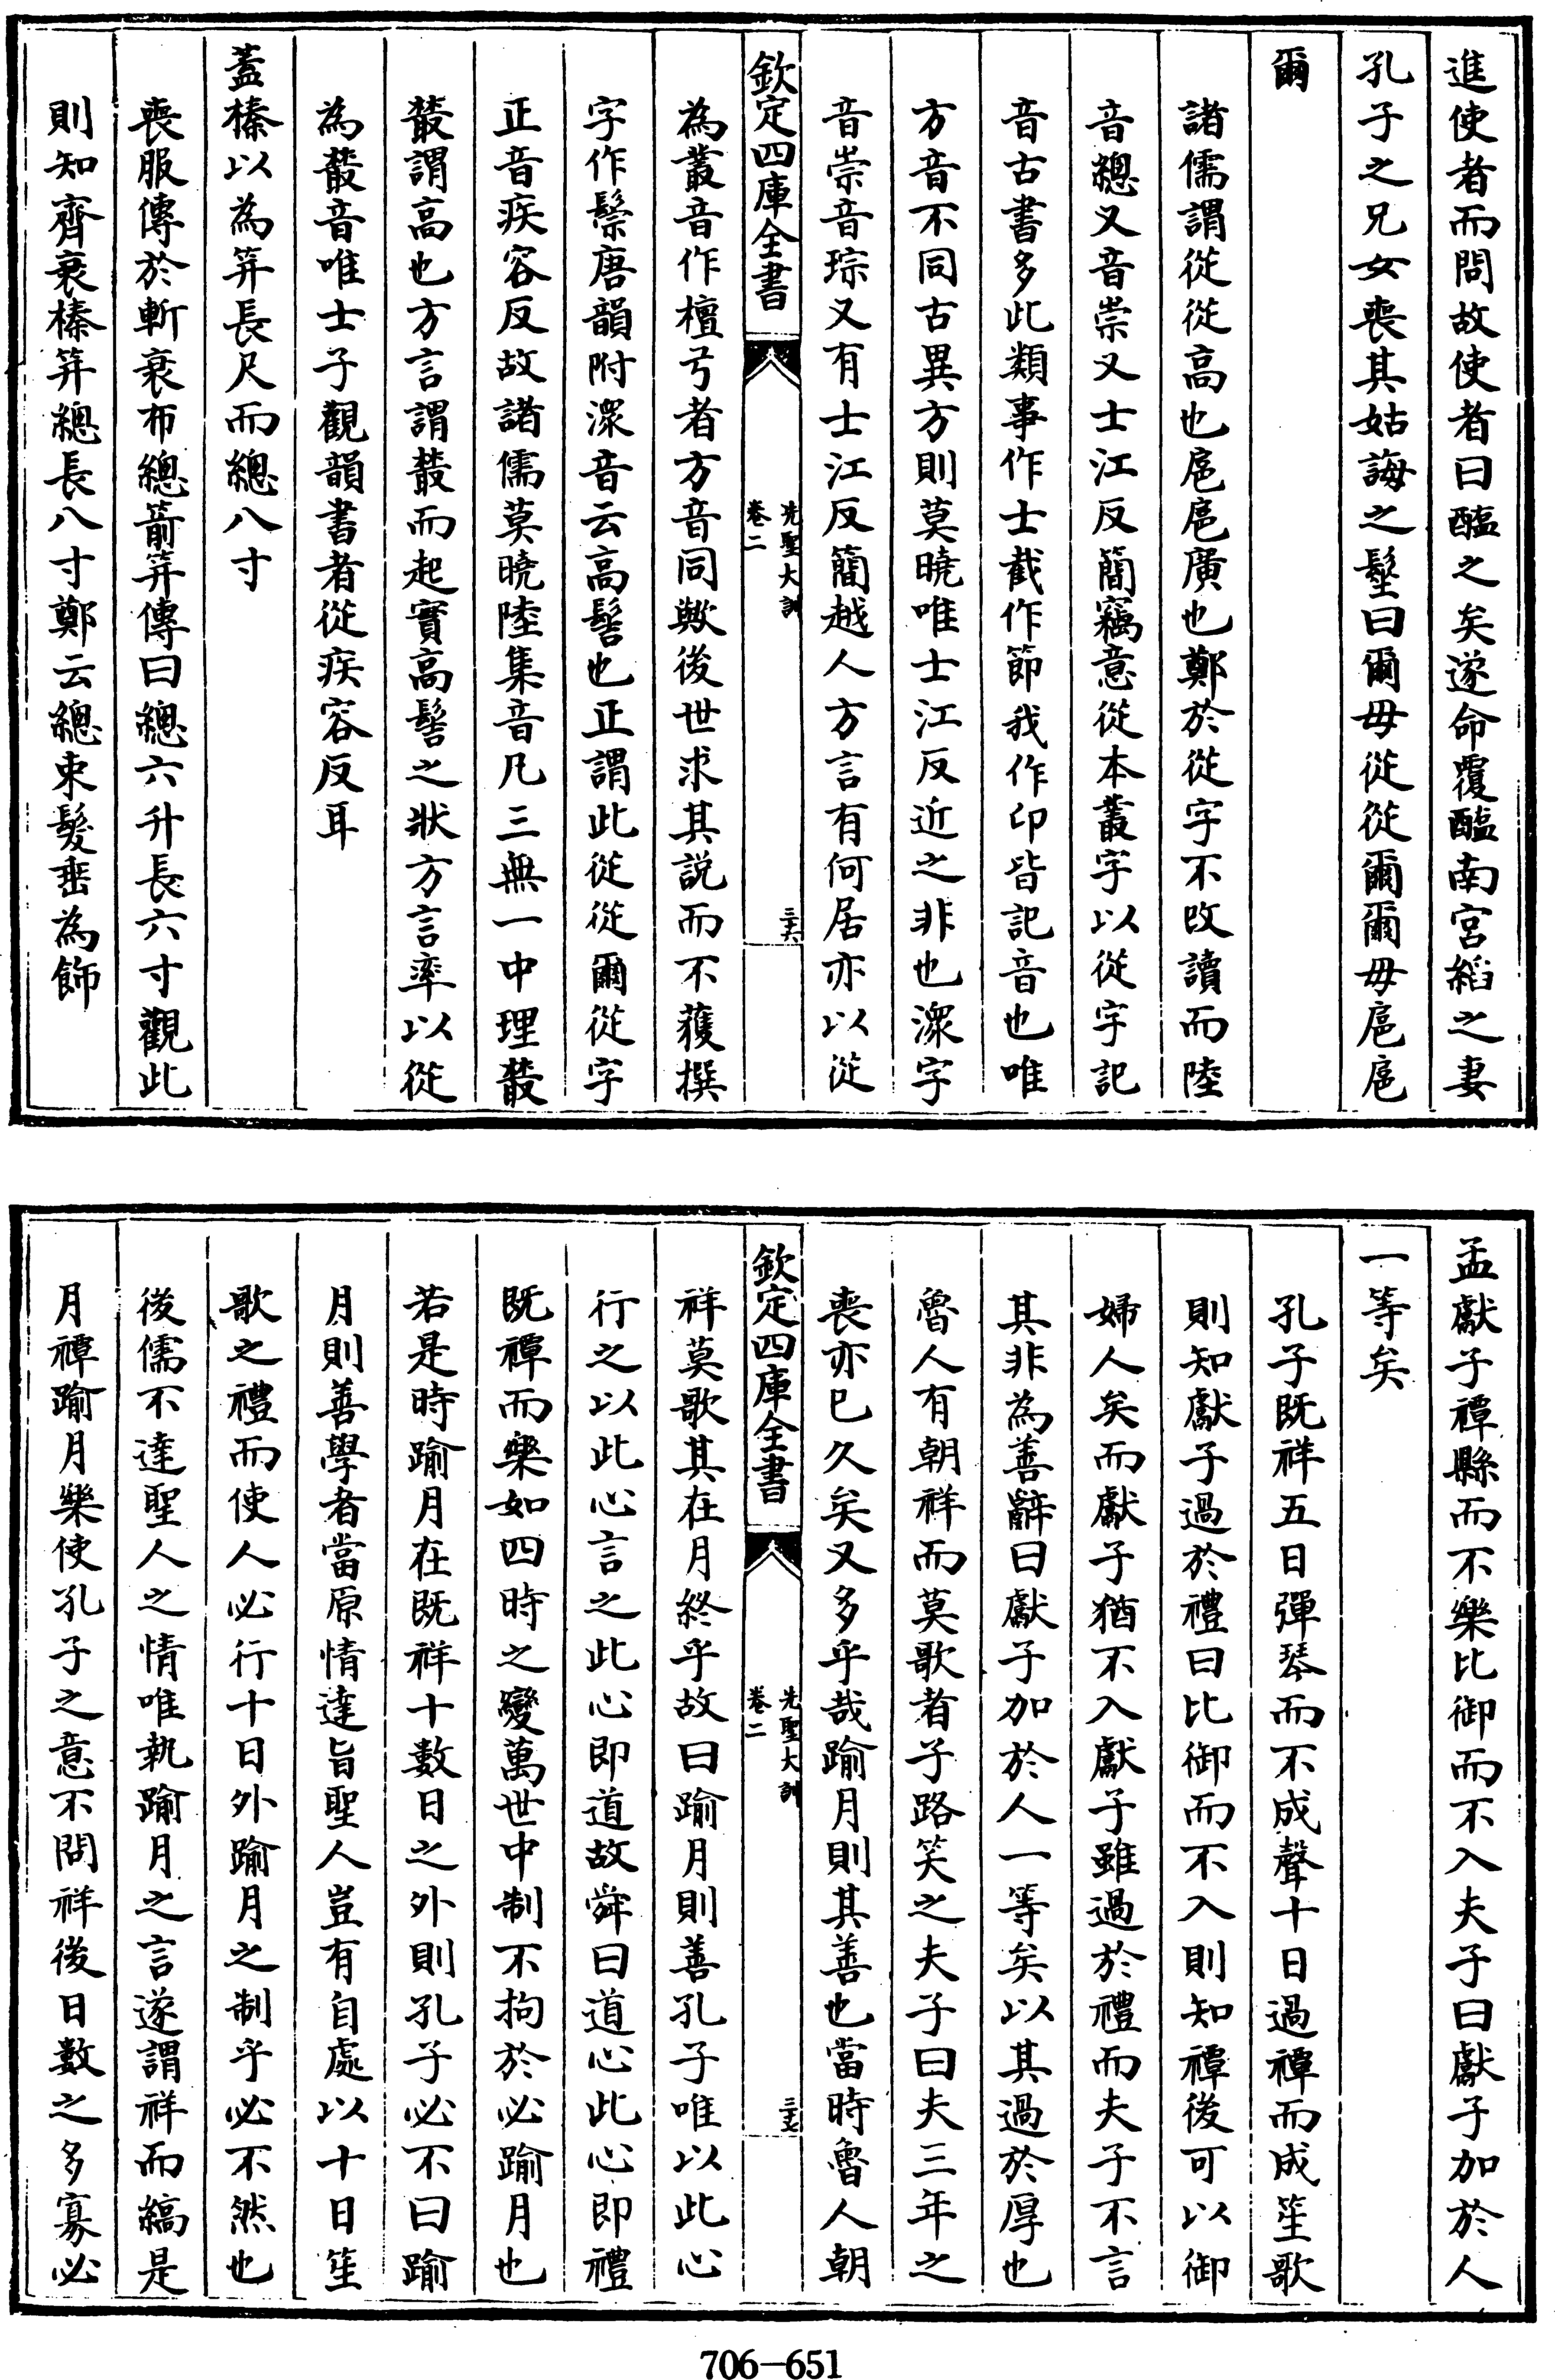 進使者而問故使者曰醢之矣遂命覆醢南宮縚之妻
孔子之兄女喪其姑誨之髽曰爾毋從從爾爾毋扈扈
爾
諸儒謂從從高也扈扈廣也鄭於從字不改讀而陸
音總又音崇又士江反簡竊意從本叢字以從字記
音古書多此類事作士截作節我作印皆記音也唯
方音不同古異方則莫曉唯士江反近之非也潀字
音崇音琮又有士江反簡越人方言有何居亦以從
欽定四庫全書
先聖大訓
卷二
三十六
為叢音作檀弓者方音同歟後世求其說而不獲撰
字作鬃唐韻附潀音云高髻也正謂此從從爾從字
正音疾容反故諸儒莫曉陸集音凡三無一中理叢
叢謂高也方言謂叢而起實高髻之狀方言率以從
為叢音唯士子觀韻書者從疾容反耳
蓋榛以為筓長尺而總八寸
喪服傳於斬衰布總箭筓傳曰總六升長六寸觀此
則知齊衰榛筓總長八寸鄭云總束髮垂為飾
孟獻子禫縣而不樂比御而不入夫子曰獻子加於人
一等矣
孔子既祥五日彈琴而不成聲十日過禫而成笙歌
則知獻子過於禮曰比御而不入則知禫後可以御
婦人矣而獻子猶不入獻子雖過於禮而夫子不言
其非為善辭曰獻子加於人一等矣以其過於厚也
魯人有朝祥而莫歌者子路笑之夫子曰夫三年之
喪亦已久矣又多乎哉踰月則其善也當時魯人朝
欽定四庫全書
先聖大訓
卷二
三十七
祥莫歌其在月終乎故曰踰月則善孔子唯以此心
行之以此心言之此心即道故舜曰道心此心即禮
既禫而樂如四時之變萬世中制不拘於必踰月也
若是時踰月在既祥十數日之外則孔子必不曰踰
月則善學者當原情達旨聖人豈有自處以十日笙
歌之禮而使人必行十日外踰月之制乎必不然也
後儒不達聖人之情唯執踰月之言遂謂祥而縞是
月禫踰月樂使孔子之意不問祥後日數之多寡必
706—651